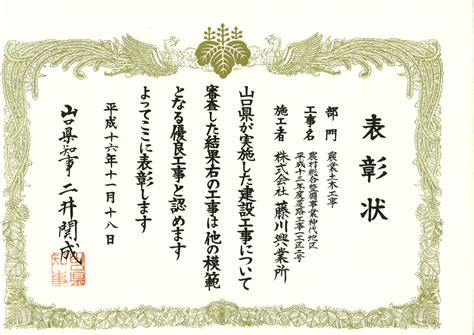 表彰状
部門 農業土木工事
工事名 農村総合整備事業神代地区
平成十三年度道路工事一工区二号
施工者 株式会社 藤川興業所
山口県が実施した建設工事について
審査した結果右の工事は他の模範
となる優良工事と認めます
よってここに表彰します
平成十六年十一月十八日
山口県知事 二井関成
山口県
知事